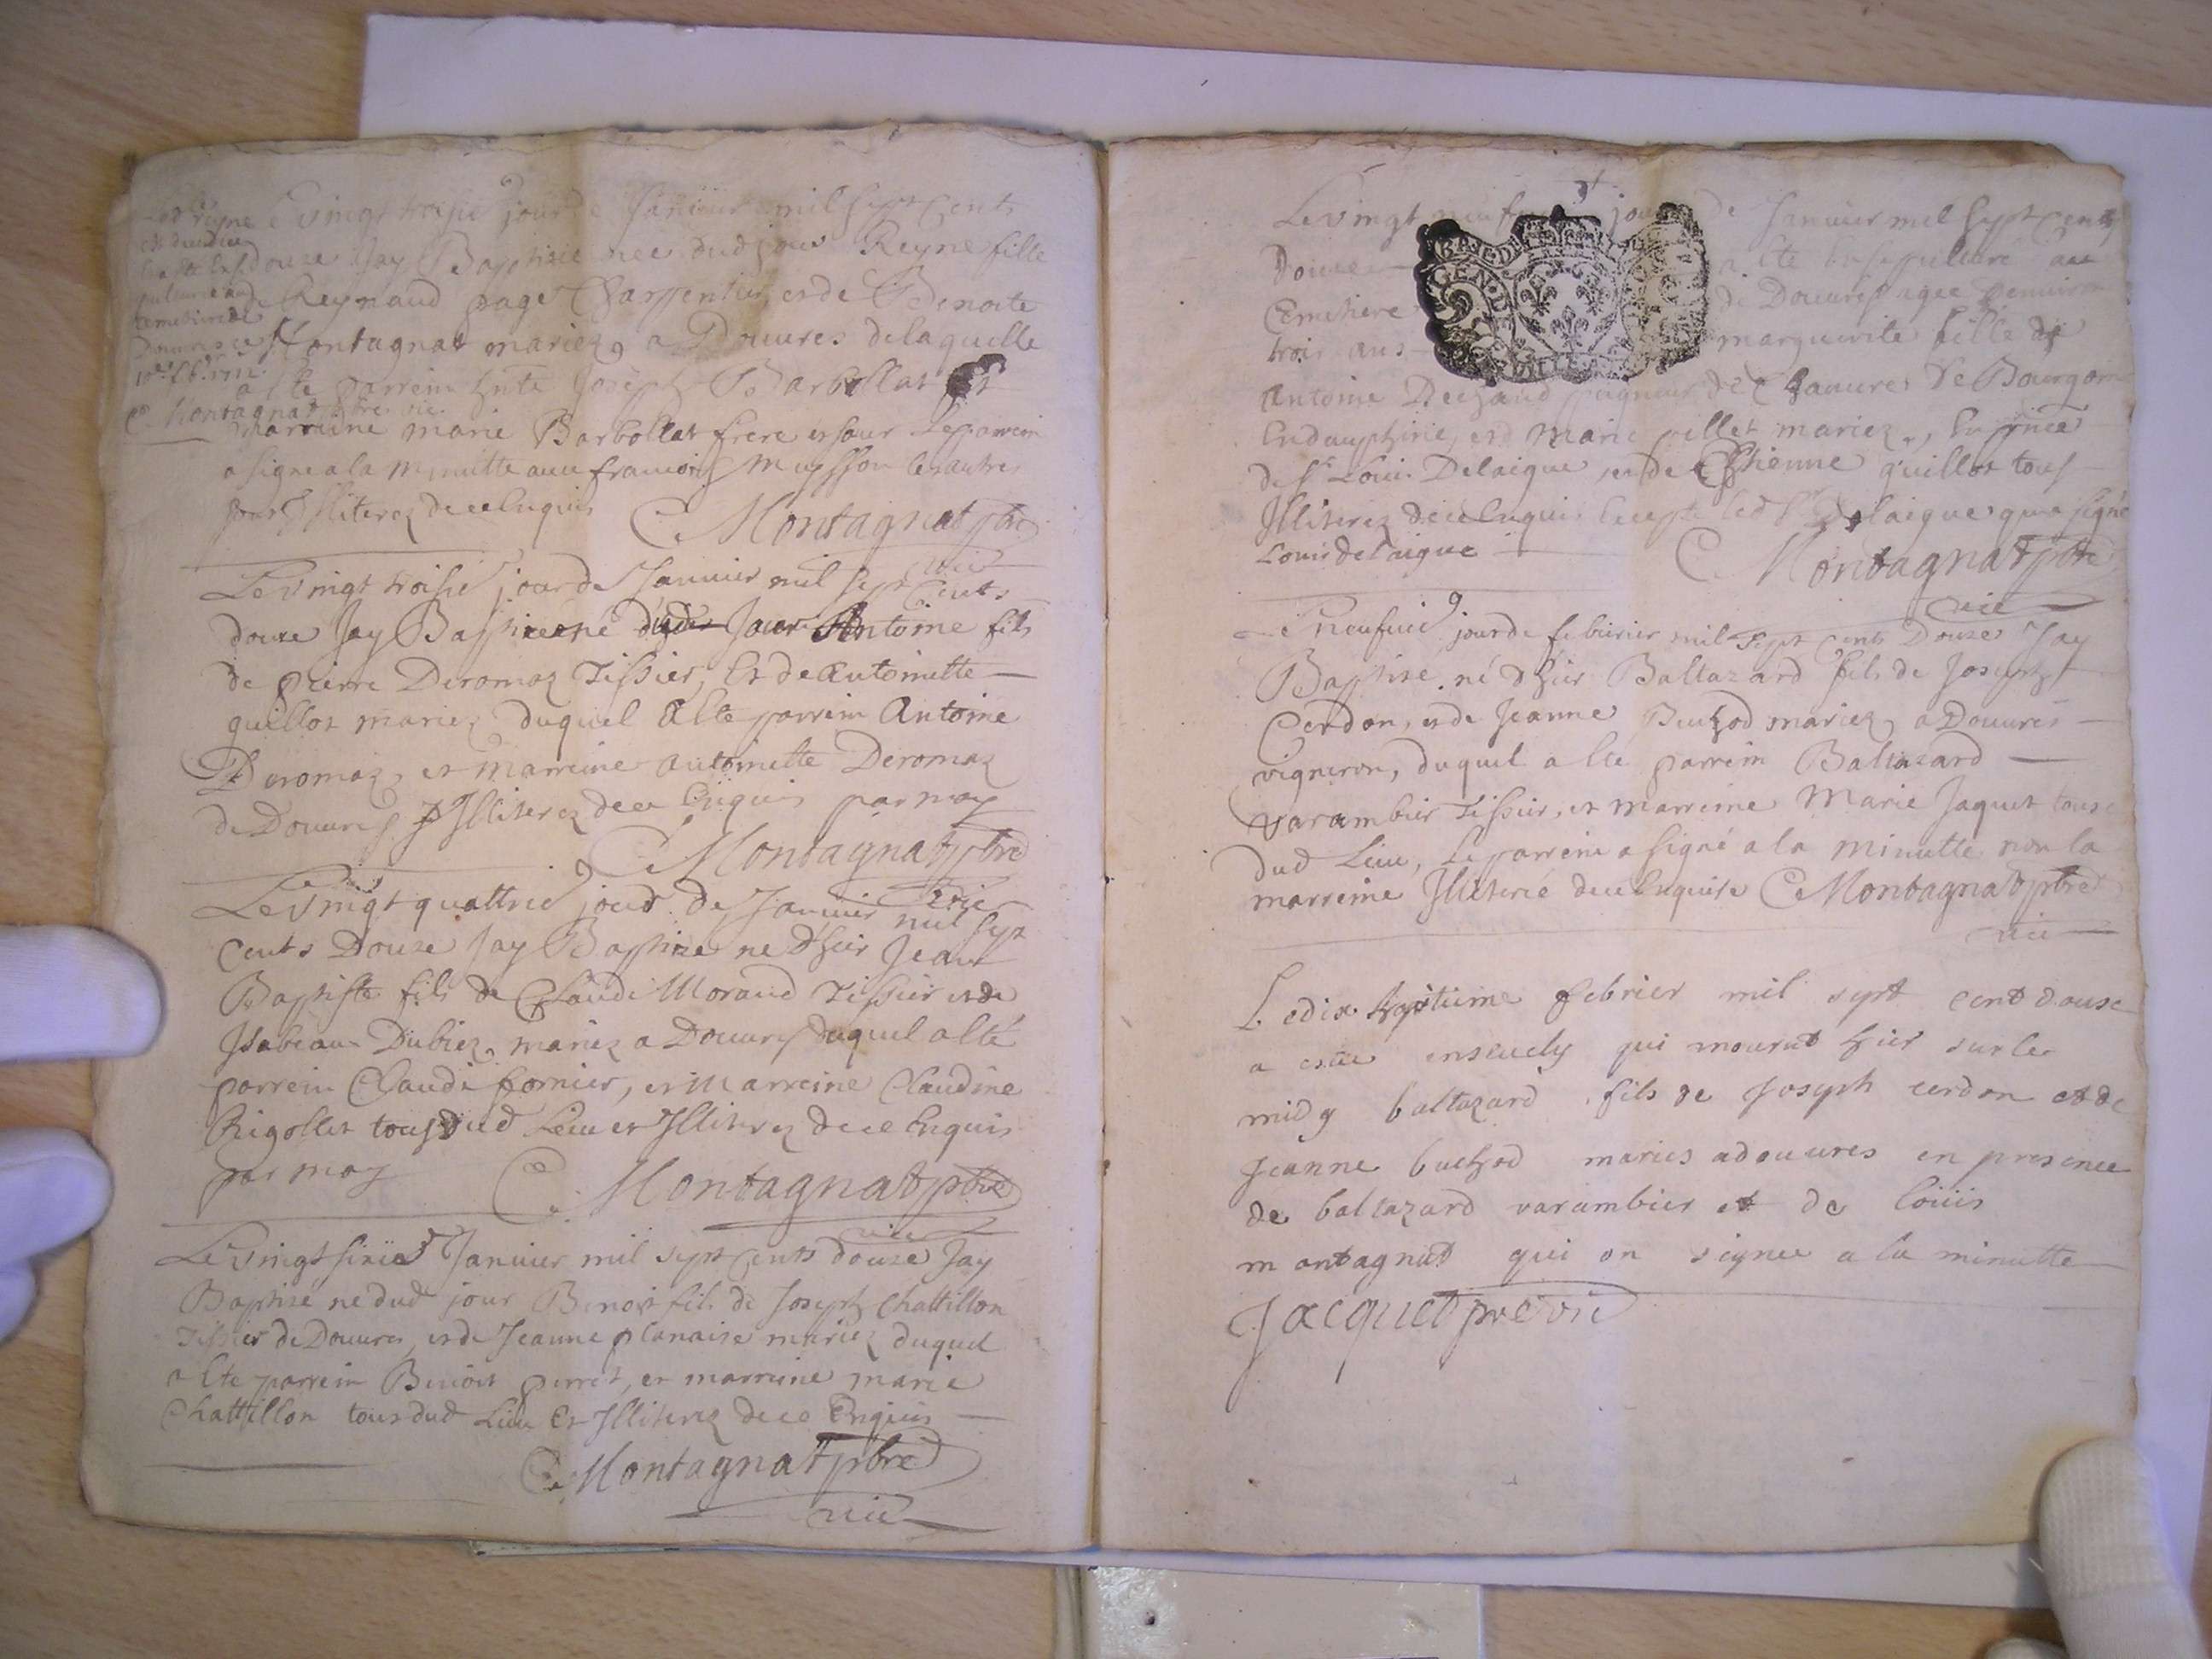 Le vingt troisie jour de Janvier mil sept Cents
douze Jay Baptisée née dud jour Reyne fille
de Reynaud page Charpentier, et de Benoite
Montagnat mariez, a Douvres delaquelle
a Ete parrein Joseph Barbollat et
marraine marie Barbollat frere et soeur Le parrein
a signe a la minutte avec francois Muysson les autres
sont Jlliterez de ce Enquis
C Montagnat ptre
vic
Led Reyne
cimetiere de
Douvres ce
10e f.b. 1712
C. Montagnat ptre vic
Le vingt troisie jour de Janvier mil sept
Cents
douze Jay Baptisé né dud Jour Antoine fils
de pierre Deromaz Tissier, Et de Antoinette
guillot mariez duquel a Ete parrein Antoine
Deromaz, et marreine antoinette Deromaz
de Douvres Jlliterez de ce Enquis par moy
C Montagnat ptre
vic
Le vingt quattrie jour de Janvier mil sept
cents Douze Jay Baptise ne dhier Jean
Baptiste fils de Claude Morand Tissier et de
Jsabeau Dubiez, mariez a Douvres duquel a Eté
parrein Claude fornier, et Marreine Claudine
Rigollet tous dud Lieu et Jlliterez de ce Enquis
par moy
C Montagnat ptre
vic
Le vingt sixie Janvier mil sept cents douze Jay
Baptisé ne dud jour Benoit fils de Joseph Chattillon
Tissier de Douvres, et de Jeanne planaise mariez duquel
a Ete parrein Benoit perret, et marreine marie
Chattillon tous dud Lieu Et Jlliterez de ce Enquis
C Montagnat ptre
vic
Le vingt neuf jour de Janvier mil sept Cents
Douze a Ete la sepulture au
Cemetiere de Douvres agee denviron
trois ans marguerite fille de
antoine peigneur de Chanvres de Bourgoin
En dauphine, et marie pillet mariez,
de Sr Louis Delaigue, et de Estienne guillot tous
Jlliterez de ce Enquis Excepte led Sr Delaigue qui a signé
Louis delaigue
C Montagnat ptre
vic
Le neufvie jour de febvrier mil sept cents Douze Jay
Baptisé né dhier Baltazard fils de Joseph
Cerdon, et de Jeanne Beuchod mariez, a Douvres
vigneron, duquel a Ete parrein Baltazard
varambier Tissier, et marreine Marie Jaquet tous
dud Lieu, Le parrein a signé a la minutte non la
marreine Jlliterée de ce Enquise C Montagnat ptre
vic
Le dix huitieme febrier mil sept cent douse
a estee ensevely qui mourut hier sur le
midy baltazard fils de Joseph cerdon et de
Jeanne buchod maries a douvres en presence
de baltazard varambier et de loüis
montagnat qui on signee a la minutte
Jacquet pre vic